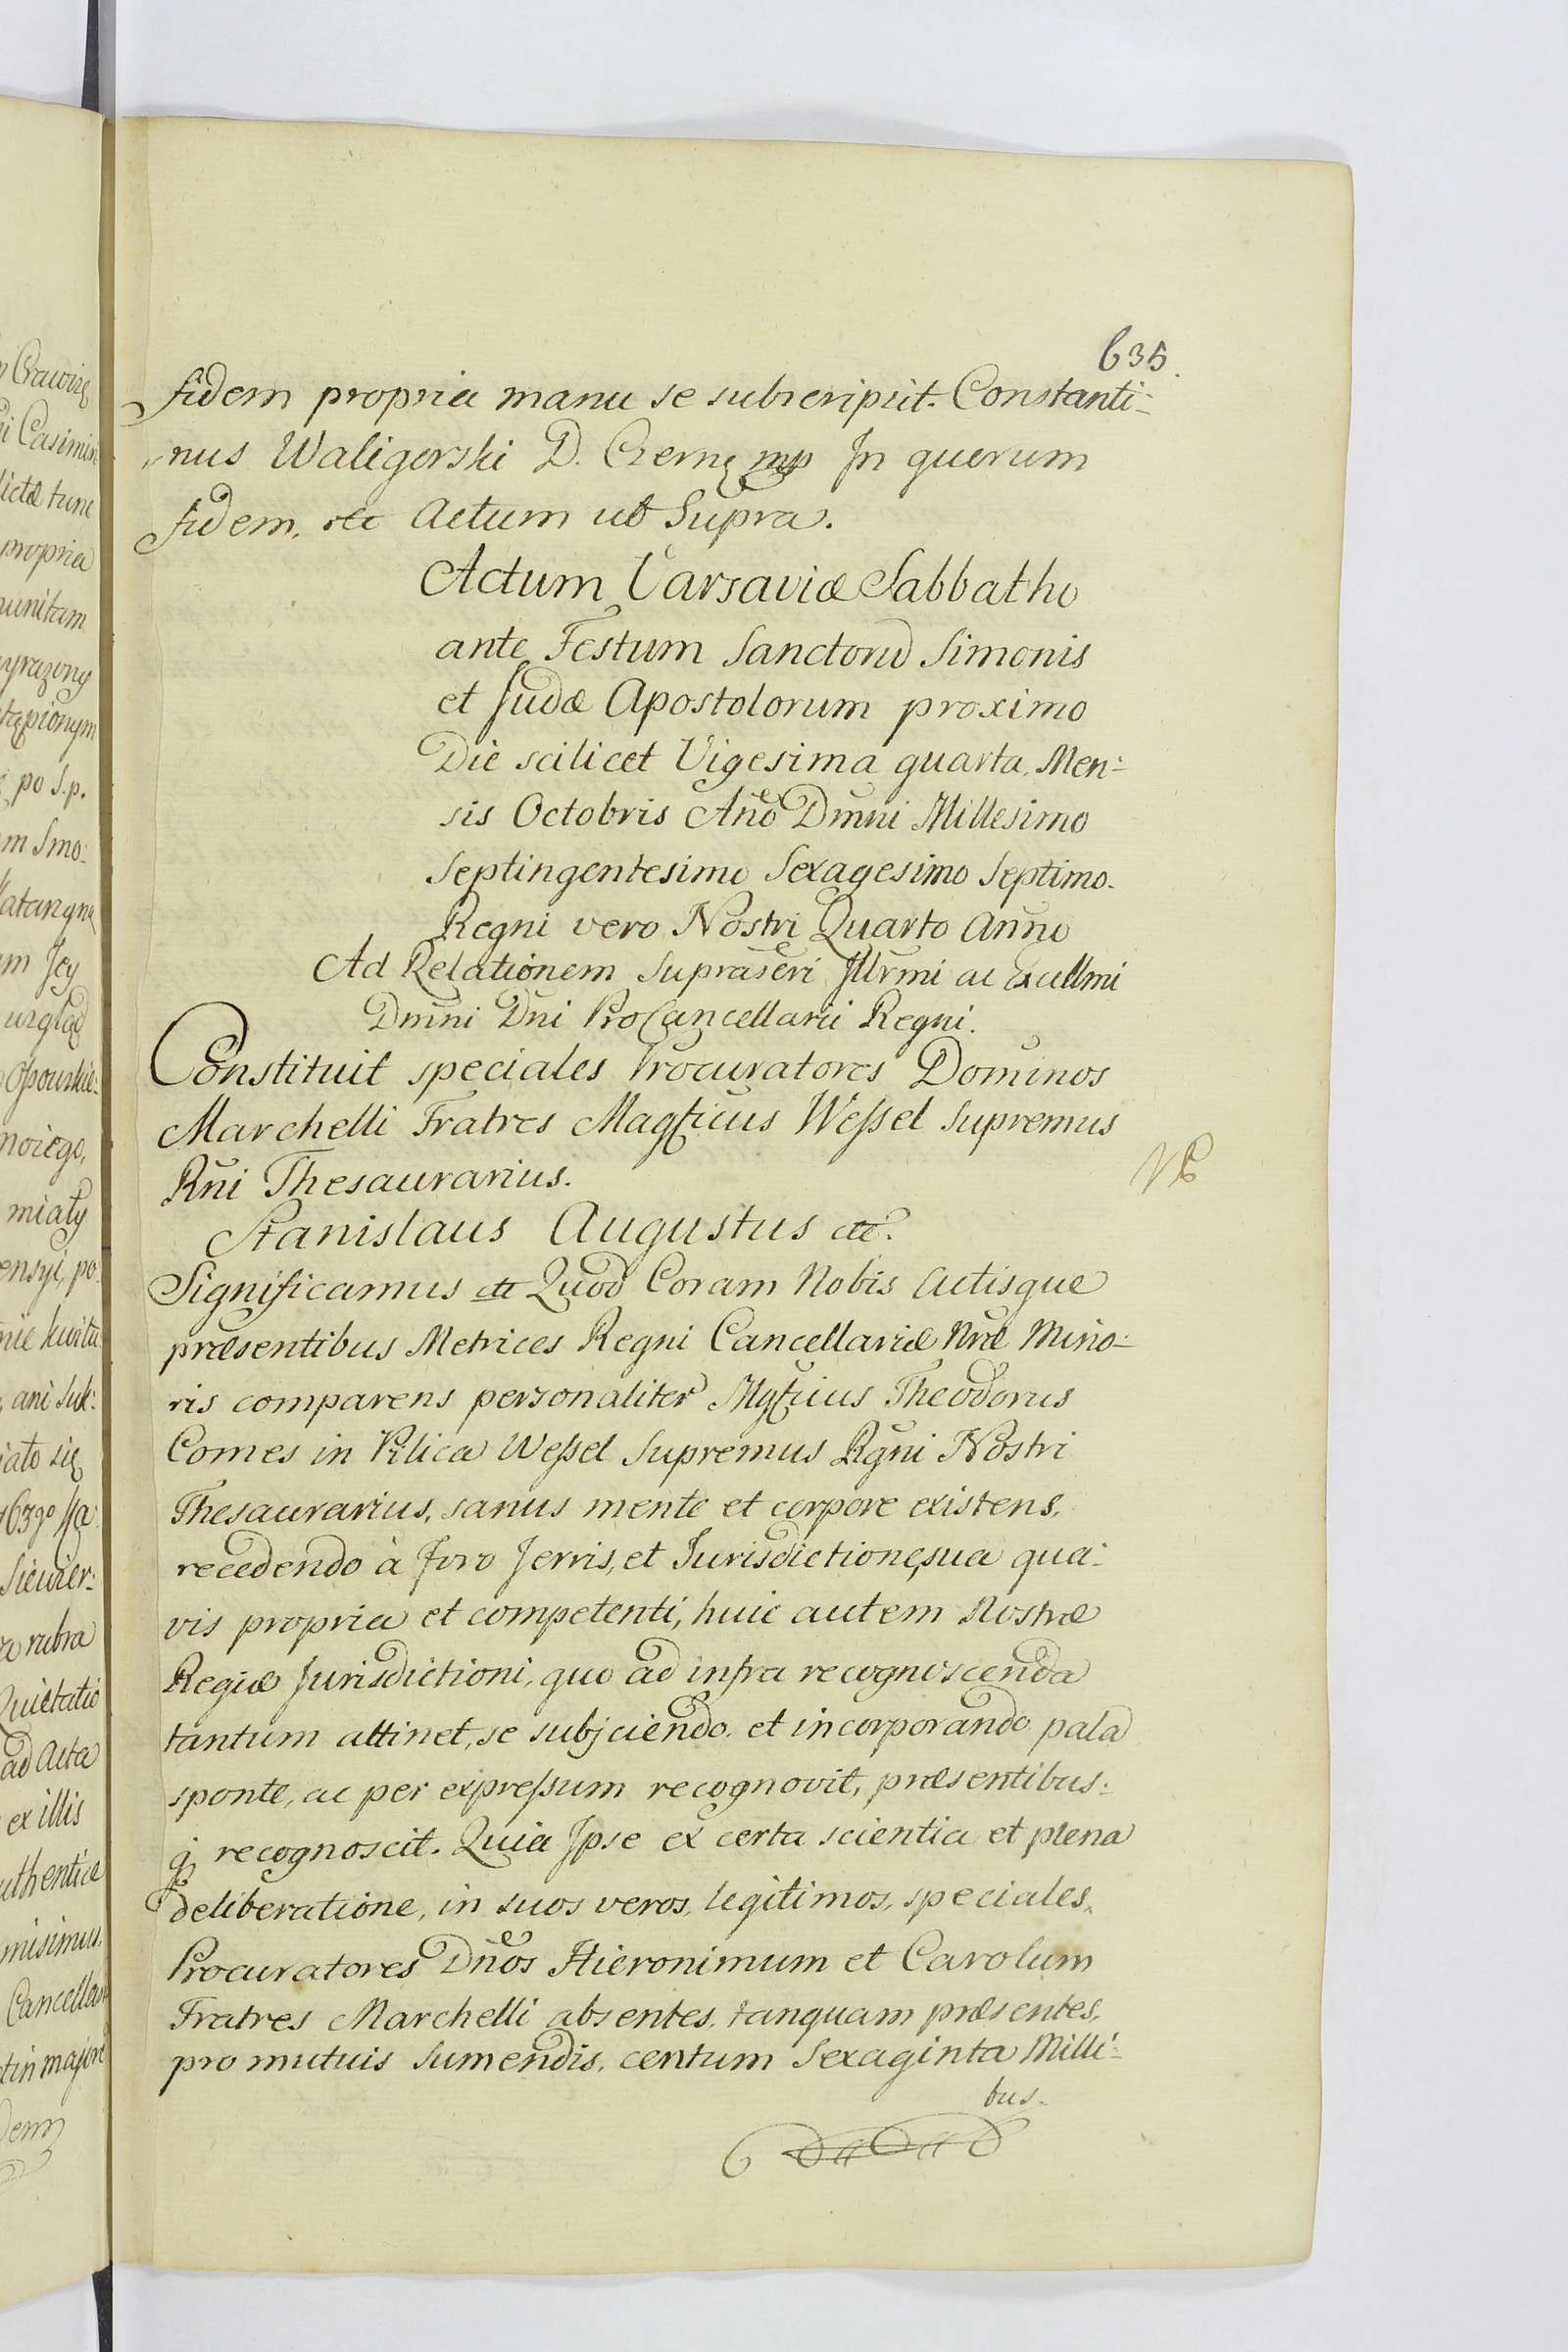 635.
fidem propria manu se subscripsit. Constanti-
nus Waligorski D. Czernę mp In quorum
fidem, etc Actum ut Supra.
Actum Varsaviæ Sabbatho
ante Festum Sanctorũ Simonis
et Judæ Apostolorum proximo
Die scilicet Vigesima quarta, Men-
sis Octobris Año Dmni Millesimo
Septingentesimo Sexagesimo Septimo.
Regni vero Nostri Quarto Anno
Ad Relationem suprascri Jllrmi ac Excellmi
Dmni Dni ProCancellarii Regni.
Constituit speciales Procuratores Dominos
Marchelli Fratres Magficus Wessel Supremus
Rni Thesaurarius.
Stanislaus Augustus etc.
Significamus etc Quod Coram Nobis Actisque
præsentibus Metrices Regni Cancellariæ Nræ Mino-
ris comparens personaliter Mgficus Theodorus
Comes in Pilica Wessel Supremus Rgni Nostri
Thesaurarius, sanus mente et corpore existens,
recedendo à foro Jerris, et Jurisdictione, sua qua-
vis propria et competenti, huic autem Nostræ
Regiæ Jurisdictioni, quo ad infra recognoscenda
tantum attinet, se subjciendo et incorporando palã
sponte, ac per expressum recognovit, præsentibus-
q recognoscit. Quia Ipse ex certa scientia et plena
deliberatione, in suos veros, legitimos, speciales,
Procuratores Dños Hieronimum et Carolum
Fratres Marchelli absentes, tanquam præsentes,
pro mutuis sumendis, centum Sexaginta Milli-
bus.